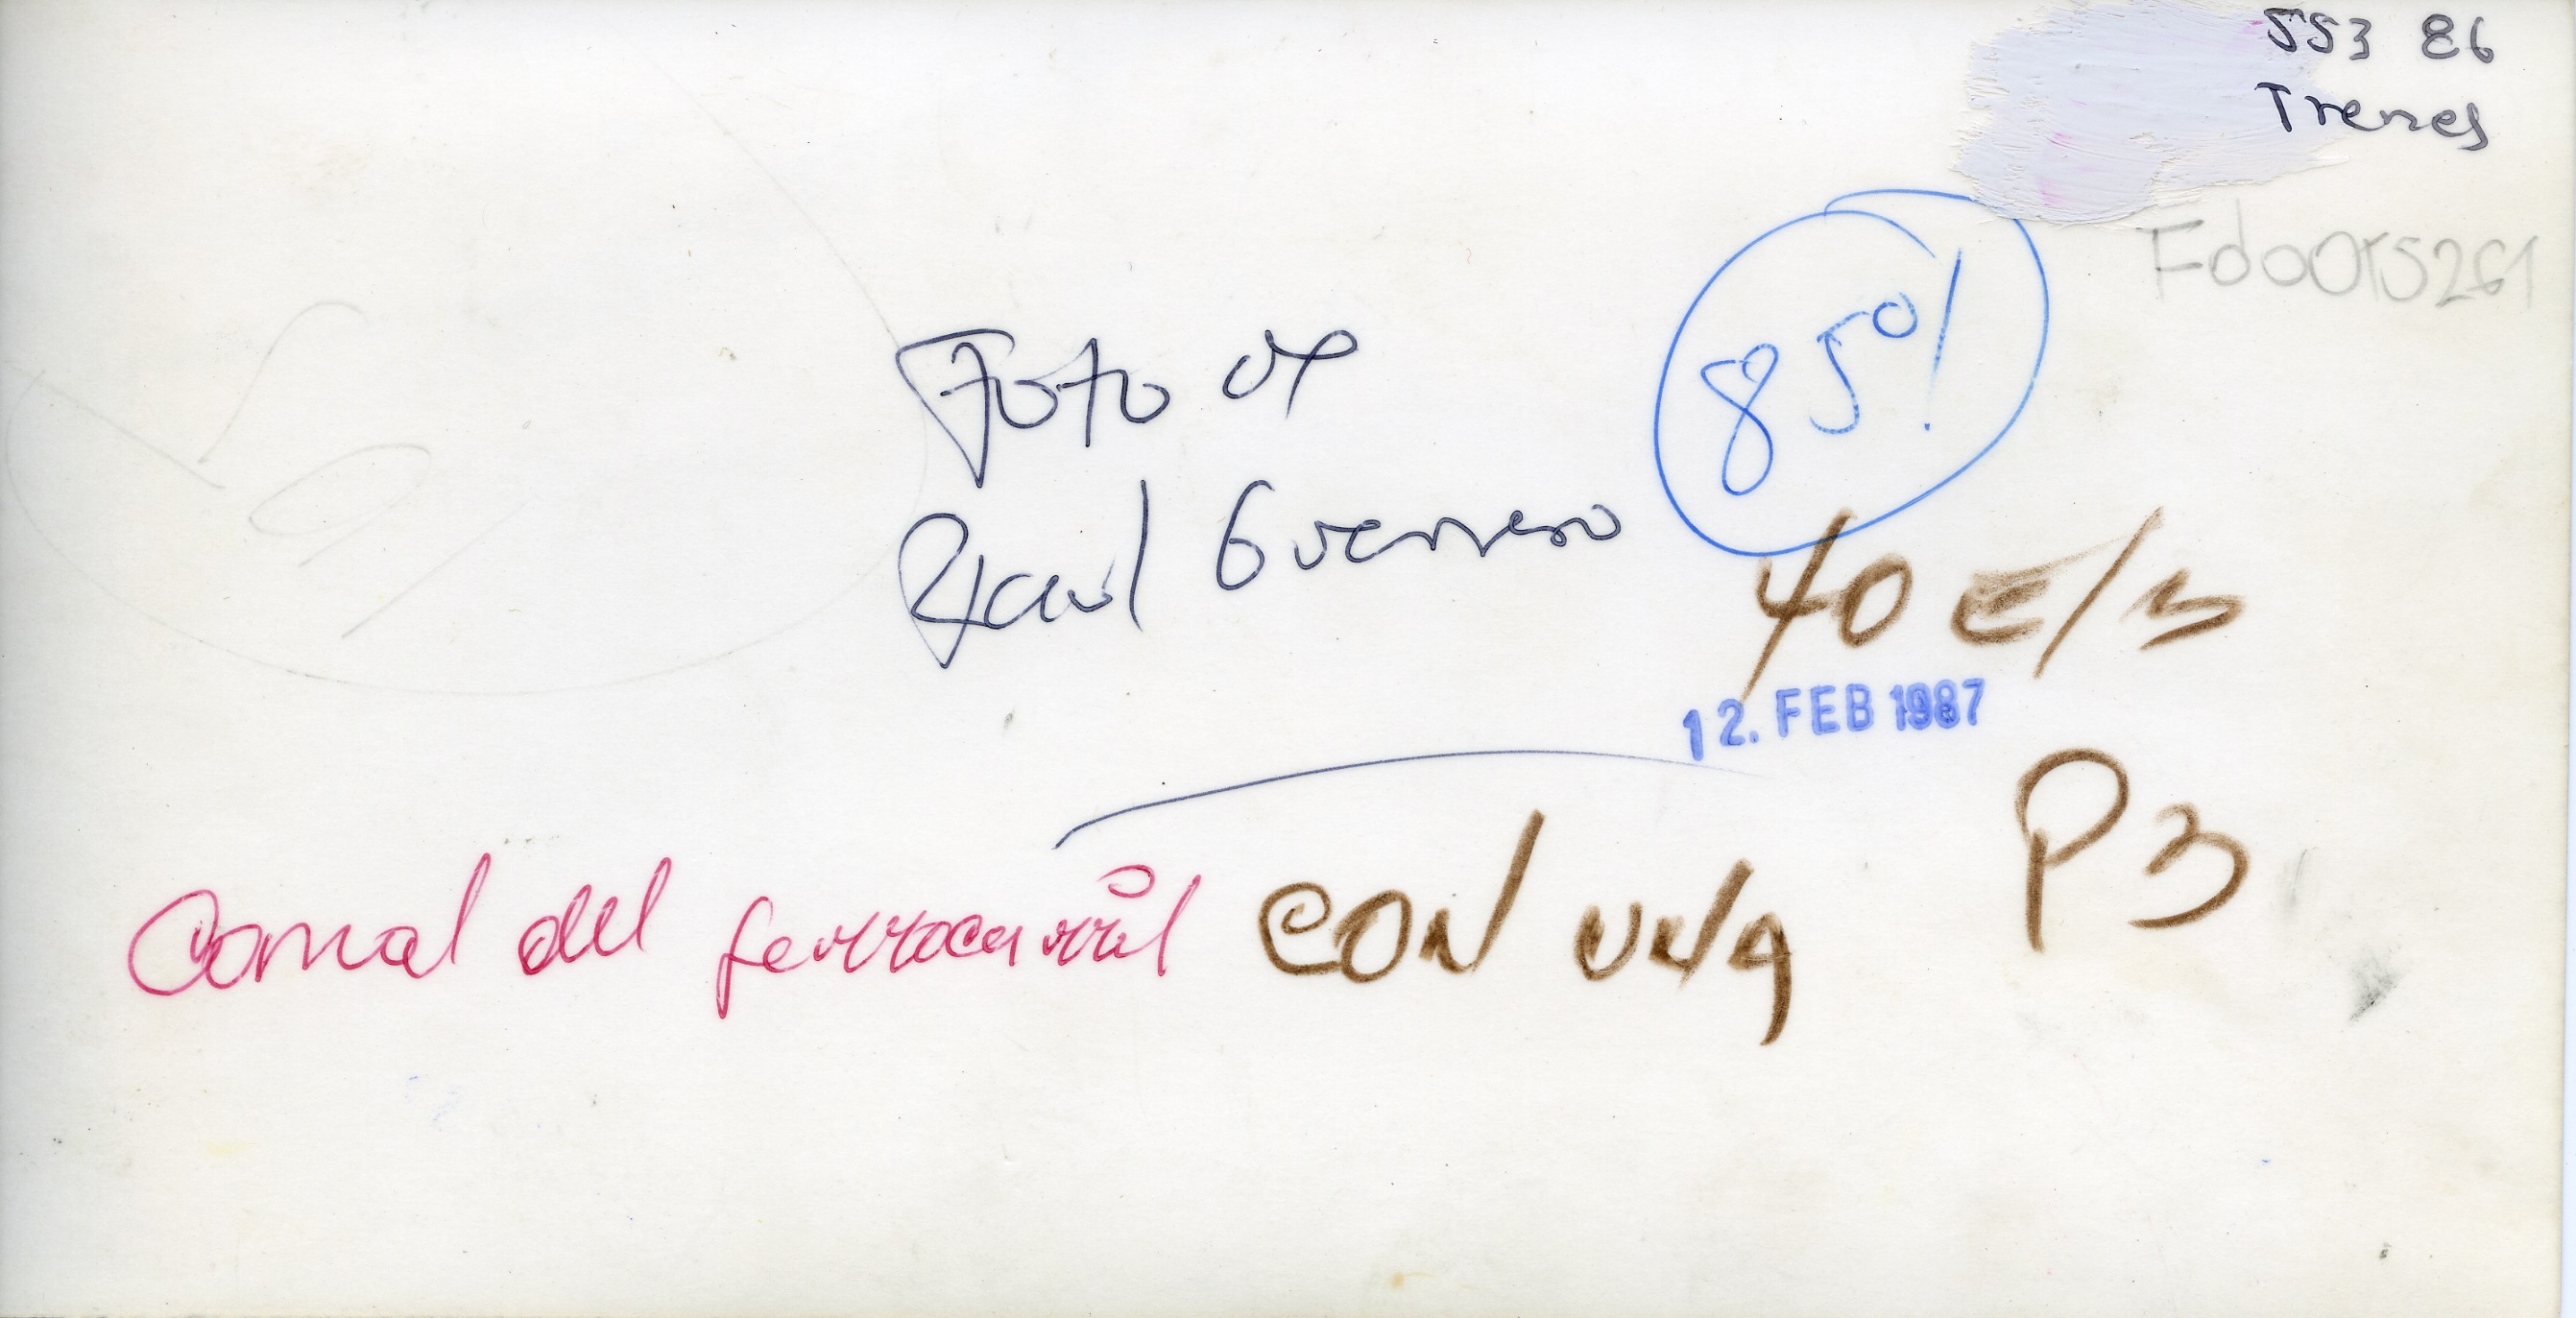 553 86
Trenes
Fdo015261
85%
Foto de
Raúl Guerrero
40 E/3
12. FEB 1987
P3
Corral del ferrocarril CON UNA